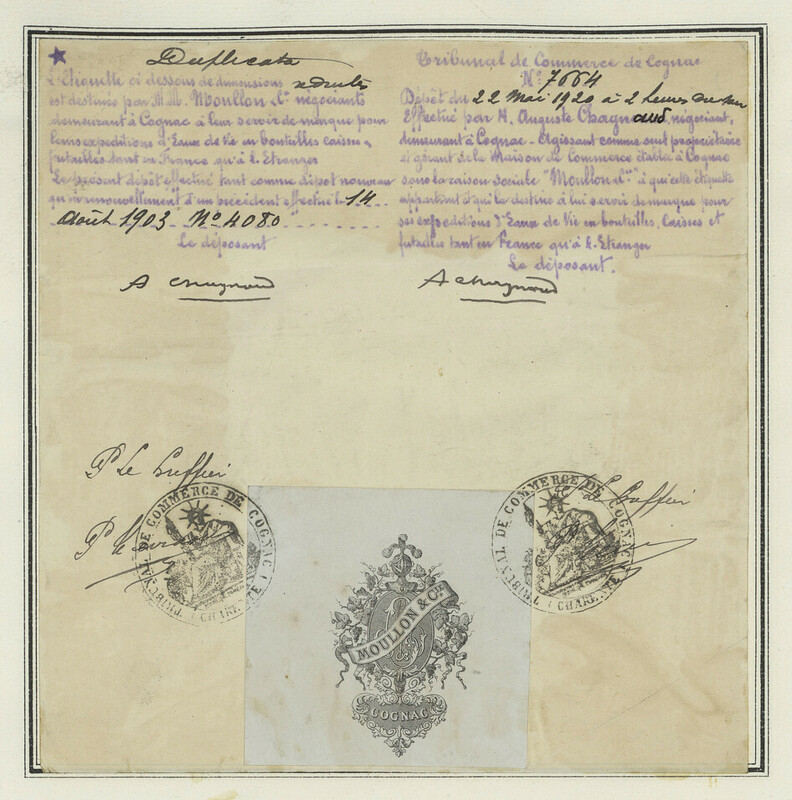 Duplicata
L'Etiquette ci dessous de dimensions réduites
est destinée par M.M. Moullon & Cie négociants
demeurant à Cognac à leur servir de marque pour
leurs expeditions d'Eaux de Vie en bouteilles caisses &
futailles tant en France qu'à l'Etranger
Le présent dépôt effectué tant comme dépôt nouveau
qu'en renouvellement d'un précédent effectué le 14
Août 1903 No 4080
Le déposant
A Chagnaud
Tribunal de Commerce de Cognac
No 7664
Dépôt du 22 Mai 1920 à 2 heures du soir
Effectué par M. Auguste Chagnaud, négociant,
demeurant à Cognac - Agissant comme seul propriétaire
et gérant de la Maison de Commerce établie à Cognac
sous la raison sociale "Moullon & Cie" à qui cette étiquette
appartient et qui la destine à lui servir de marque pour
ses expeditions d'Eaux de Vie en bouteilles, Caisses et
futailles tant en France qu'à l'Etranger
Le déposant.
A Chagnaud
P Le Greffier
TRIBUNAL DE COMMERCE DE COGNAC (CHARENTE)
MOULLON & Cie
COGNAC
Le Greffier
TRIBUNAL DE COMMERCE DE COGNAC (CHARENTE)